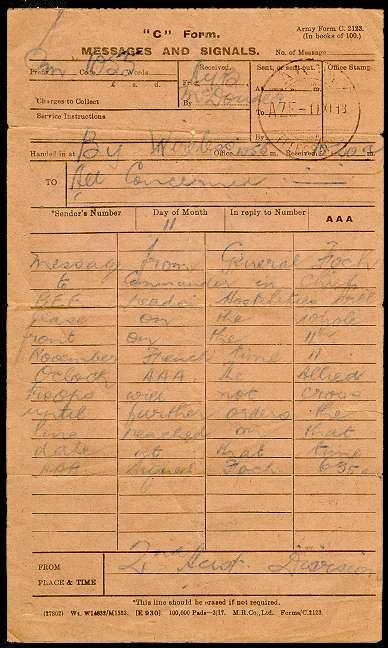 "C" Form. Army Form C. 2123.
MESSAGES AND SIGNALS. (In books of 100.)
No. of Message
Prefix Code Words Received. Sent, or sent out. Office Stamp.
£ s. d. From At m.
Charges to Collect By To
Service Instructions By
By Wireless
Handed in at Office m. Received m.
TO All Concerned
*Sender's Number Day of Month In reply to Number AAA
11
Message from General Foch
to Commander in Chiefs
BEF Hostilities will
cease on the whole
front on the 11th
November French time 11
O'clock AAA The Allied
troops will not cross
until further orders the
line reached on that
date at that time
AAA signed Foch 6·35
FROM 2nd Aust. Division
PLACE & TIME
*This line should be erased if not required.
(27802) Wt. W14832/M1523. [E 930]. 100,000 Pads—2/17. M.R.Co., Ltd. Forms/C.2123.